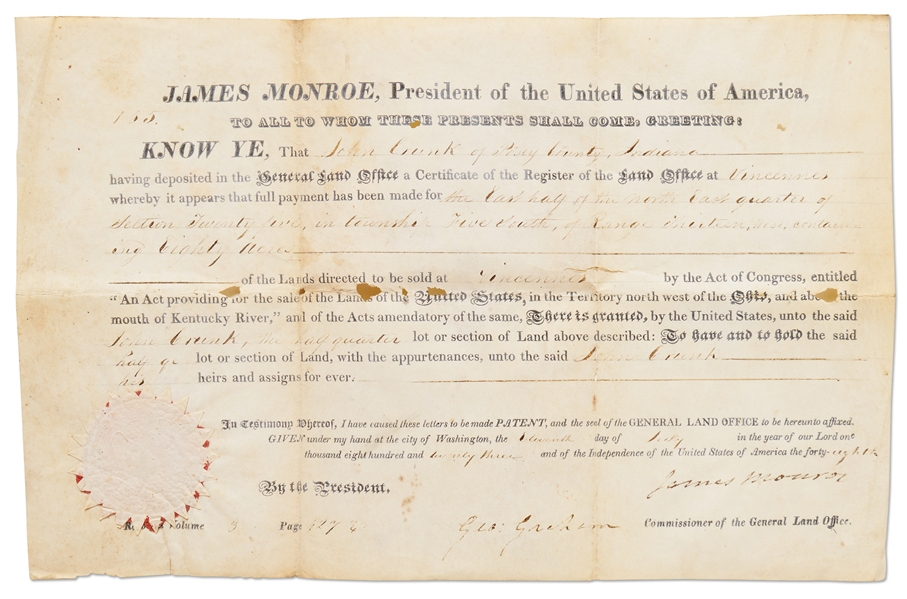 JAMES MONROE, President of the United States of America,
TO ALL TO WHOM THESE PRESENTS SHALL COME, GREETING:
KNOW YE, That John Crunk of Posey County, Indiana
having deposited in the General Land Office a Certificate of the Register of the Land Office at Vincennes
whereby it appears that full payment has been made for the East half of the north East quarter of
Section Twenty five, in township Five South, of Range Thirteen, West, contain
ing Eighty Acres
of the Lands directed to be sold at Vincennes by the Act of Congress, entitled
"An Act providing for the sale of the Lands of the United States, in the Territory north west of the Ohio, and above the
mouth of Kentucky River," and of the Acts amendatory of the same, There is granted, by the United States, unto the said
Crunk, the half quarter lot or section of Land above described: To have and to hold the said
half qr lot or section of Land, with the appurtenances, unto the said Crunk
his heirs and assigns for ever.
In Testimony Whereof, I have caused these letters to be made PATENT, and the seal of the GENERAL LAND OFFICE to be hereunto affixed.
GIVEN under my hand at the city of Washington, the Eleventh day of July in the year of our Lord one
thousand eight hundred and twenty three and of the Independence of the United States of America the forty-eighth
By the President,
James Monroe
Volume 3 Page Geo: Graham Commissioner of the General Land Office.